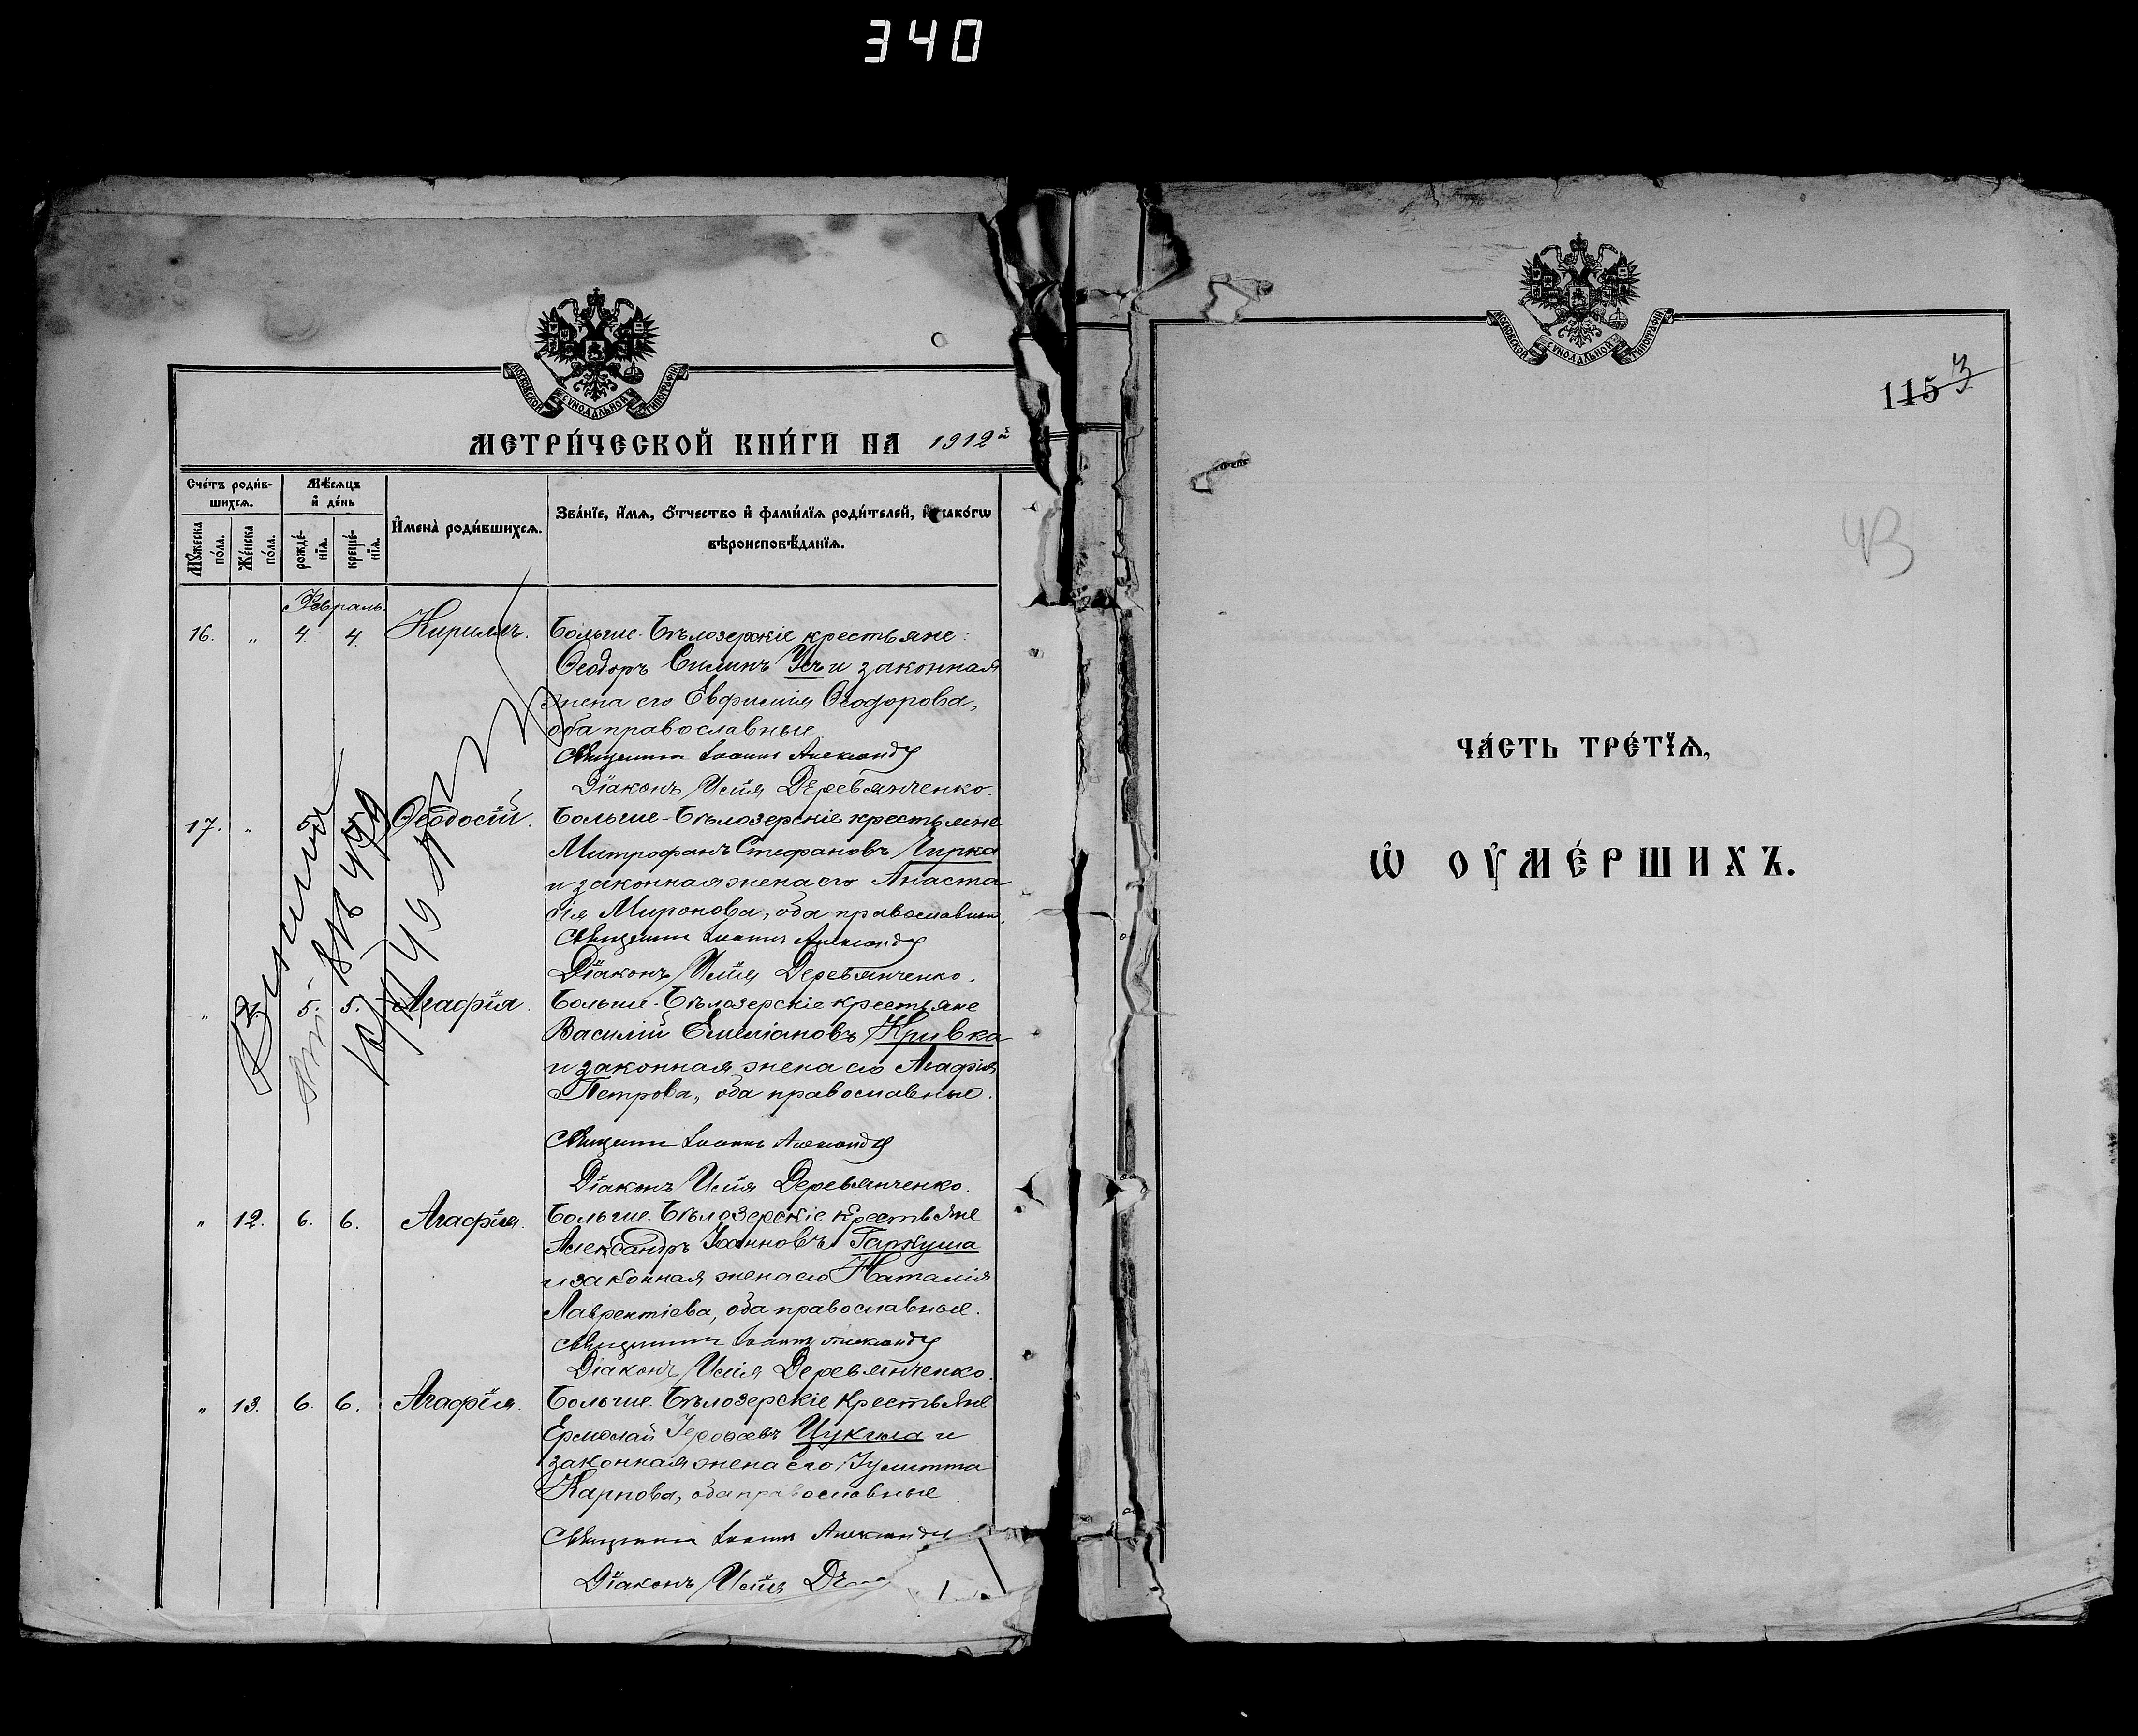 340
МОСКОВСКОЙ СѴНОДАЛЬНОЙ ТИПОГРАФІИ
МЕТРИ́ЧЕСКОЙ КНИ́ГИ НА 1912й
Сче́тъ роди́в-
шихсѧ.
Мꙋ́жеска
по́ла.
Же́нска
по́ла.
Мѣ́сѧцъ
и҆ де́нь
рожде́-
нїѧ.
креще́-
нїѧ.
И҆мена̀ роди́вшихсѧ.
Зва́нїе, и҆́мѧ, ѻ҆́тчество и҆ фами́лїѧ роди́телей, и҆ како́гѡ
вѣроисповѣ́данїѧ.
Февраль
16. „ 4. 4. Кириллъ. Больше-Бѣлозерскіе крестьяне:
Ѳеодоръ Силинъ Усъ и законная
жена его Евфимія Ѳеодорова,
оба православные.
Священникъ Іоаннъ Александр
Діаконъ Илія Деревянченко.
17. „ 5. Ѳеодосій. Больше-Бѣлозерскіе крестьяне
Митрофанъ Стефановъ Чирка
и законная жена его Анаста
сія Миронова, оба православные.
Священникъ Іоаннъ Александр
Діаконъ Илія Деревянченко.
„ 5. 5. Агафія. Больше-Бѣлозерскіе крестьяне
Василій Емеліановъ Кривка
и законная жена его Агафія
Петрова, оба православные.
Священникъ Іоаннъ Александр
Діаконъ Илія Деревянченко.
„ 12. 6. 6. Агафія. Больше-Бѣлозерскіе крестьяне
Александръ Іоанновъ Гаркуша
и законная жена его Наталія
Лаврентіева, оба православные.
Священникъ Іоаннъ Александр
Діаконъ Илія Деревянченко.
„ 13. 6. 6. Агафія. Больше-Бѣлозерскіе крестьяне
Ермолай Іерофеевъ Цукила и
законная жена его Іулитта
Карпова, оба православные
Священникъ Іоаннъ Александр
Діаконъ Илія Де
МОСКОВСКОЙ СѴНОДАЛЬНОЙ ТИПОГРАФІИ
115 3
43
ЧА́СТЬ ТРЕ́ТЇѦ,
Ѡ҆ ОУ҆МЕ́РШИХЪ.